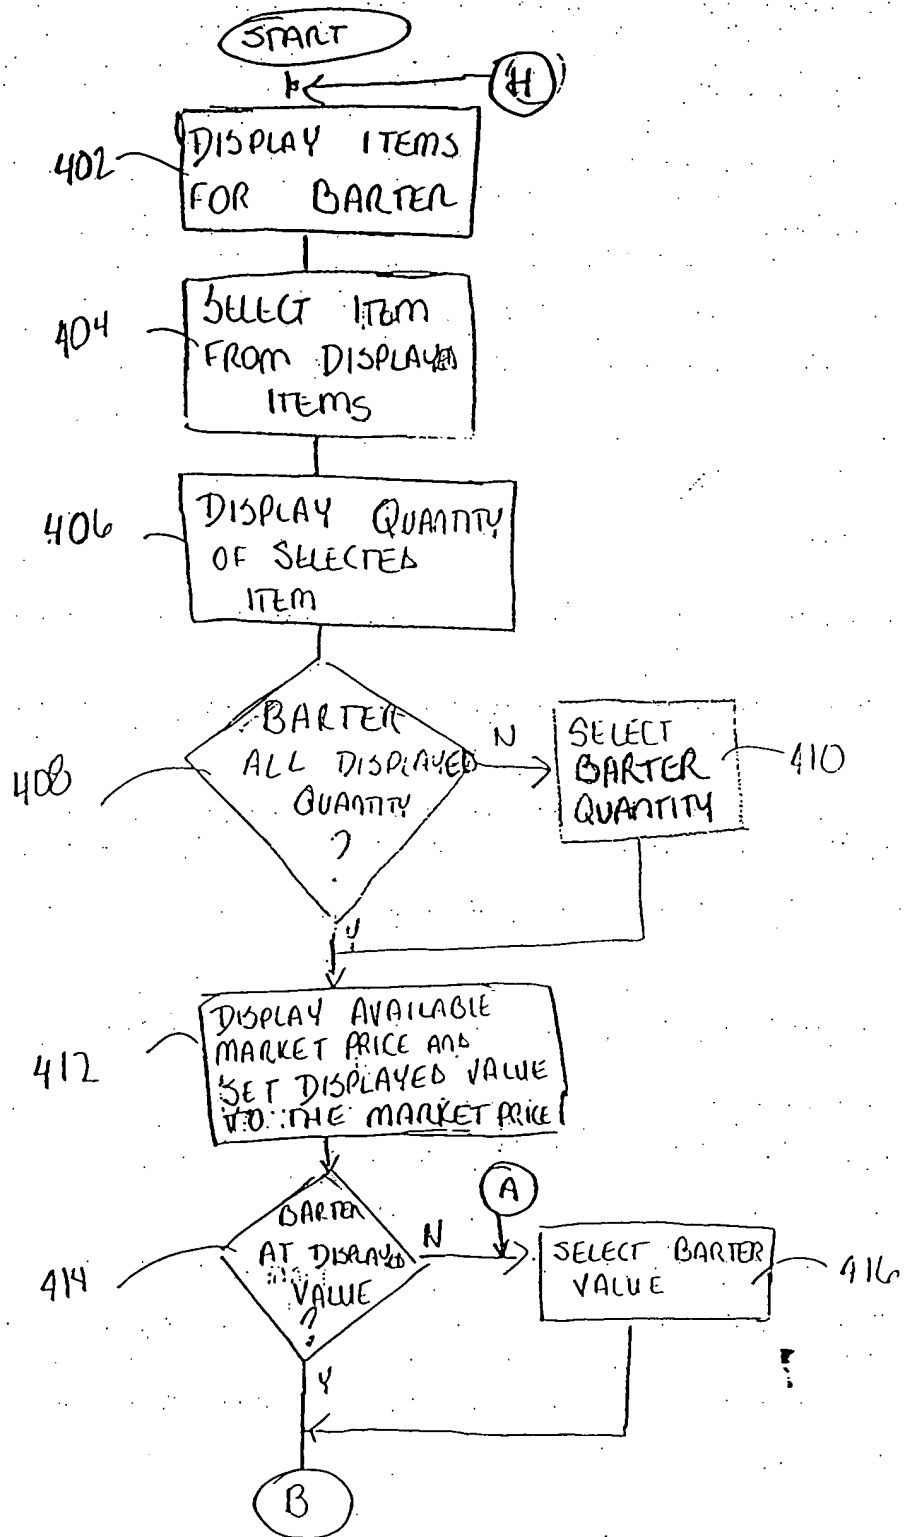 START
H
402
DISPLAY ITEMS
FOR BARTER
404
SELECT ITEM
FROM DISPLAYED
ITEMS
406
DISPLAY QUANTITY
OF SELECTED
ITEM
408
BARTER
ALL DISPLAYED
QUANTITY
?
N
SELECT
BARTER
QUANTITY
410
Y
412
DISPLAY AVAILABLE
MARKET PRICE AND
SET DISPLAYED VALUE
TO THE MARKET PRICE
414
BARTER
AT DISPLAYED
VALUE
?
N
A
SELECT BARTER
VALUE
416
Y
B